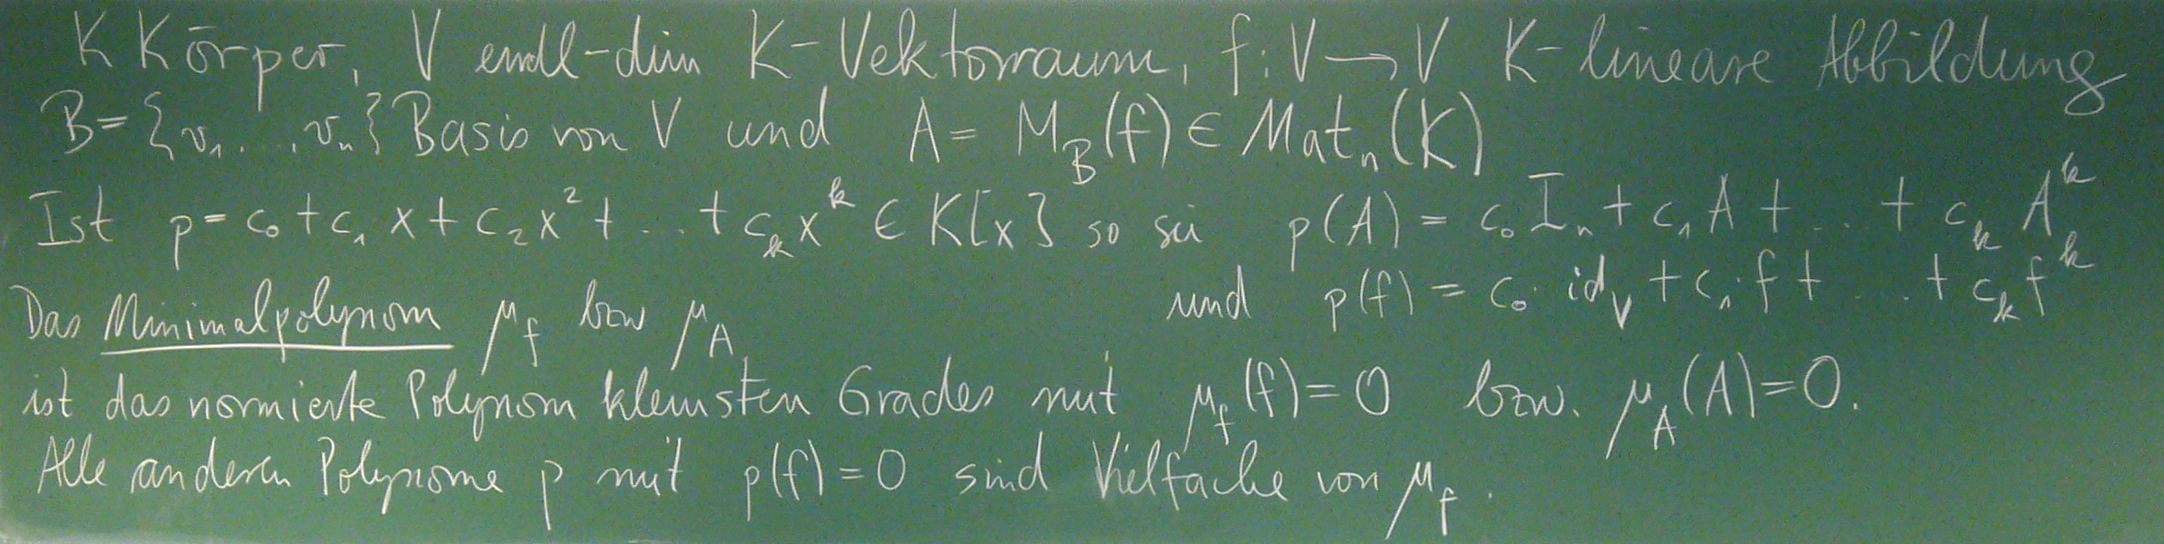 K Körper, V endl-dim K-Vektorraum, f: V → V K-lineare Abbildung
B = {v₁, ..., vₙ} Basis von V und A = M_B(f) ∈ Matₙ(K)
Ist p = c₀ + c₁ x + c₂ x² + ... + c_k x^k ∈ K[x] so sei p(A) = c₀ Iₙ + c₁ A + ... + c_k A^k
und p(f) = c₀ · id_V + c₁ · f + ... + c_k f^k
Das Minimalpolynom μ_f bzw μ_A
ist das normierte Polynom kleinsten Grades mit μ_f(f) = 0 bzw. μ_A(A) = 0.
Alle anderen Polynome p mit p(f) = 0 sind Vielfache von μ_f.